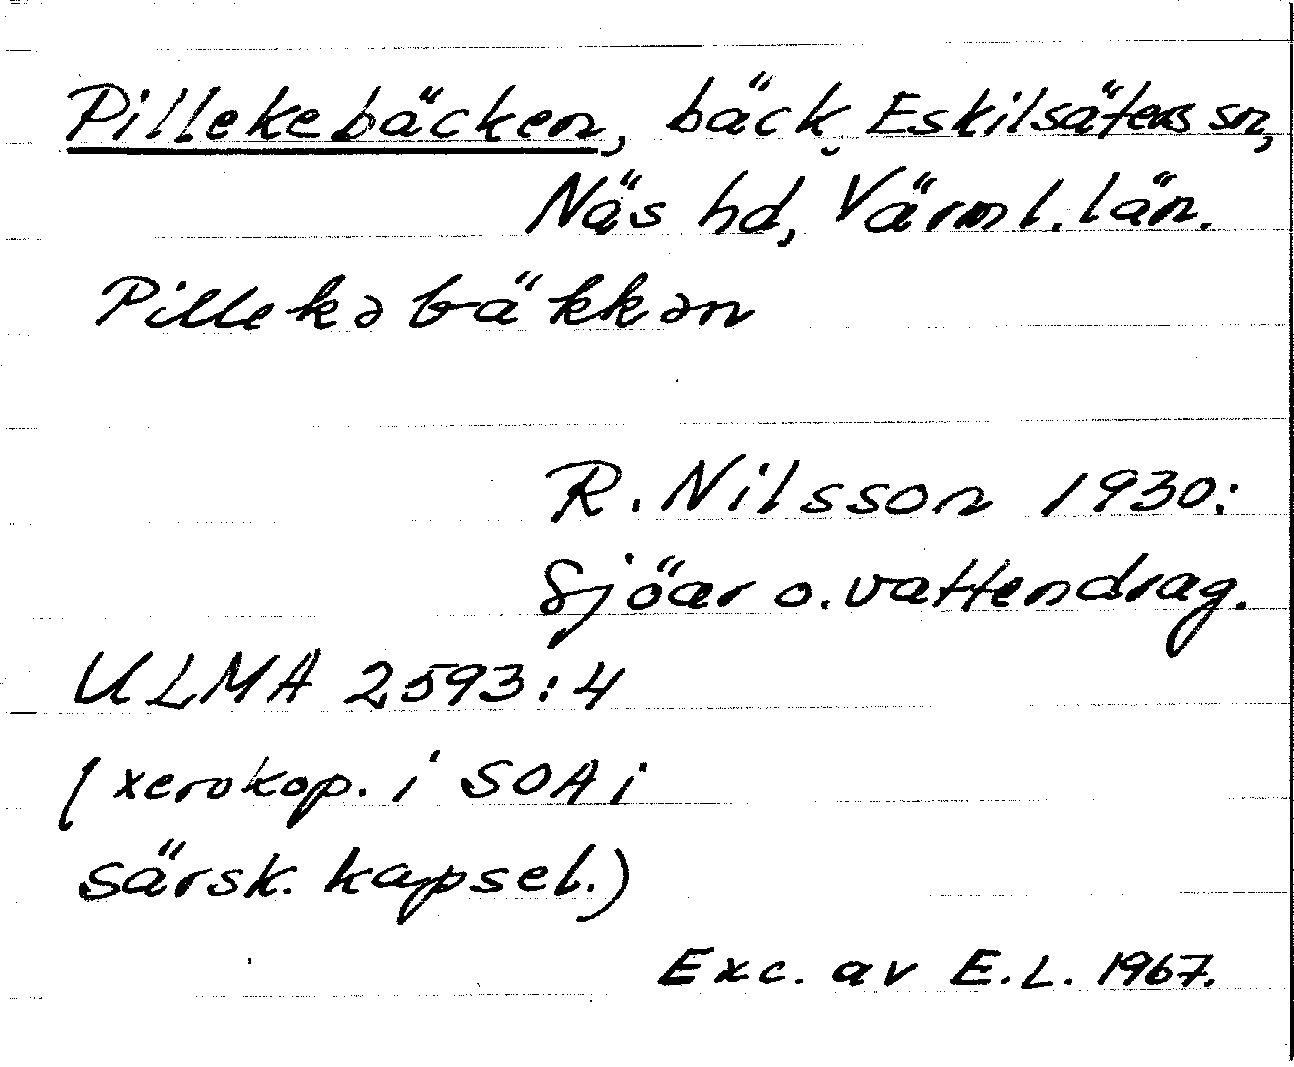 Pillekebäcken, bäck, Eskilsäters sn,
Näs hd, Värml. län.
Pillekə bäkkən
R. Nilsson 1930:
Sjöar o. vattendrag.
ULMA 2593:4
(xerokop. i SOA i
särsk. kapsel.)
Exc. av E.L. 1967.